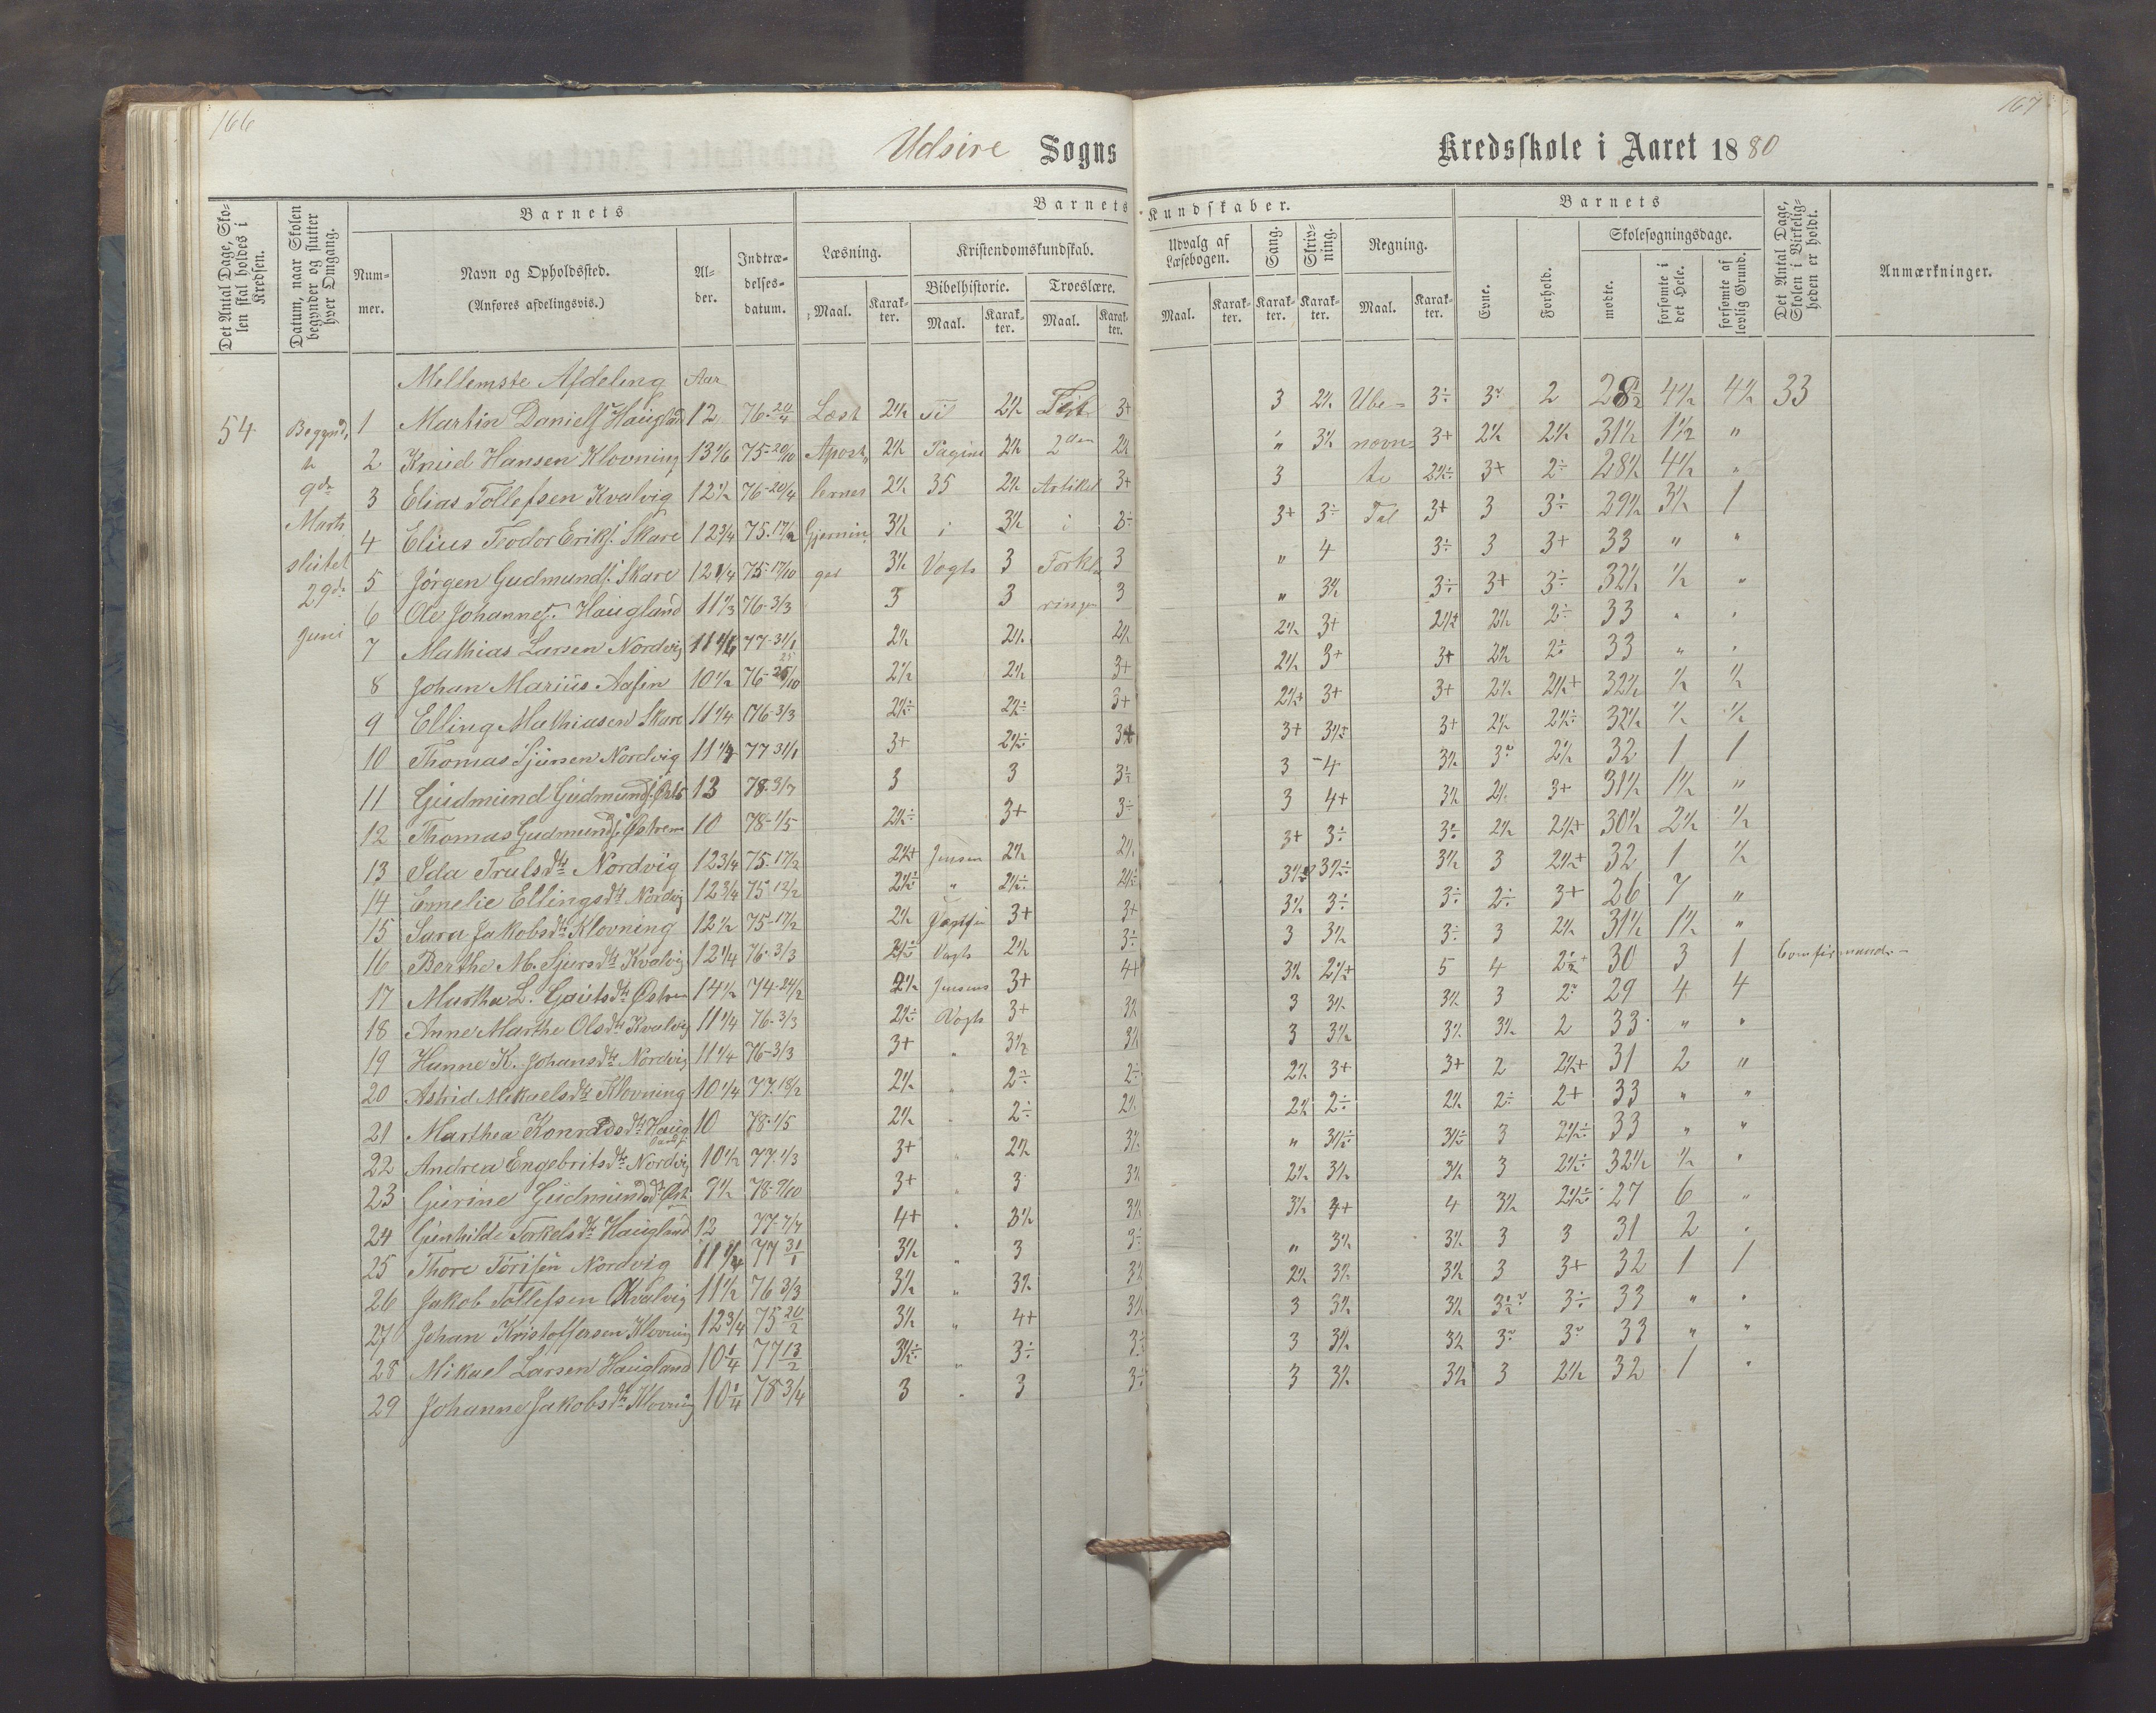 166
167
Udsire Sogns
Kredsskole i Aaret 1880
Det Antal Dage, Skolen skal holdes i Kredsen.
Datum, naar Skolen begynder og slutter hver Omgang.
Barnets
Nummer.
Navn og Opholdssted.
(Anføres afdelingsvis.)
Alder.
Indtrædelsesdatum.
Barnets Kundskaber.
Læsning.
Maal. Karakter.
Kristendomskundskab.
Bibelhistorie.
Maal. Karakter.
Troeslære.
Maal. Karakter.
Udvalg af Læsebogen.
Maal. Karakter.
Sang.
Karakter.
Skrivning.
Karakter.
Regning.
Maal. Karakter.
Barnets
Evne.
Forhold.
Skolesøgningsdage.
mødte.
forsømte i det Hele.
forsømte af lovlig Grund.
Det Antal Dage, Skolen i Virkeligheden er holdt.
Anmærkninger.
54
Begynd,
9de
Marts
sluttet
29de
Juni
Mellemste Afdeling Aar
1 Martin Daniels. Haugland 12 76-20/4 Læst 2½ Til 2½ 3+ 3 2½ Ube- 3÷ 2 28½ 4½ 4½ 33
2 Knud Hansen Klovning 13 1/6 75-20/10 Apost 2½ Pagina 2½ 2den 2½ " 3½ nævn- 3+ 2½ 2½ 31½ 1½ "
3 Elias Tollefsen Kvalvig 12½ 76-20/4 lernes 2½ 35 2½ Artikel 3+ 3 te 2½÷ 3+ 2÷ 28½ 4½ "
4 Elius Teodor Eriks. Skare 12 3/4 75-17/2 Gjernin 3½ i 3½ i 3÷ 3+ 3÷ Tal 3+ 3 3÷ 29½ 3½ 1
5 Jørgen Gudmunds. Skare 12 1/4 75-17/10 ger 3½ Vogts 3 Forkla 3 " 4 3÷ 3 3+ 33 " "
6 Ole Johannes. Haugland 11 1/3 76-3/3 3 3 ringen 3 " 3½ 3÷ 3+ 3÷ 32½ ½ "
7 Mathias Larsen Nordvig 77-31/1 2½ 2½ 2½ 2½ 3+ 2½+ 2½ 2÷ 33 " "
8 Johan Marius Aasen 10½ 2½ 2½ 3+ 2½ 3+ 3+ 2½ 2÷ 33 " "
9 Elling Mathiasen Skare 11 1/4 76-3/3 2½÷ 2½÷ 3+ 2½+ 3+ 3+ 2½ 2½+ 32½ ½ ½
10 Thomas Sjursen Nordvig 77 31/1 3+ 2½÷ 3+ 3+ 3½+ 3+ 2½ 2½÷ 32½ ½ ½
11 Gudmund Gudmunds. 13 78-3/7 3 3 3÷ 3 4 3½ 2½ 32 1 1
12 Thomas Gudmunds. Østrem 10 78-1/5 2½÷ 3+ 3÷ 3 4+ 3½ 2½ 3+ 31½ 1½ "
13 Ida Trulsdtr Nordvig 12 3/4 75-17/2 2½+ Jensen 2½ 2½ 3+ 3÷ 3÷ 2½ 2½+ 30½ 2½ ½
14 Emelie Ellingsdtr Nordvig 12 3/4 75 13/2 2½÷ " 2½÷ 2½÷ 3½÷ 3½ 3 2½+ 32 1 ½
15 Sara Jakobsdtr Klovning 12½ 75-17/2 2½ 3+ 3+ 3½ 3÷ 3÷ 2÷ 3+ 26 7 "
16 Berthe M. Sjursdtr Kvalvig 12 1/4 76-3/3 2½÷ Vogts 2½ 3÷ 3 3½ 3÷ 3 2½ 31½ 1½ "
17 Martha L. Gautsdtr Østrem 14½ 74-24/2 2½ Jensens 3+ 4+ 3½ 2½+ 5 4 30 3 1
18 Anne Marthe Olsdtr Kvalvig 11 1/4 76-3/3 2½÷ Vogts 3+ 3½ 3 3½ 3½ 3 29 4 4
19 Hanne K. Johansdtr Nordvig 11 1/4 76-3/3 3+ " 3½ 3½ 3 3½ 3½ 3½ 2 33 " "
20 Astrid Mikaelsdtr Klovning 10 1/4 77-18/2 2½ " 2÷ 2÷ 2½ 3+ 3+ 2 2½+ 31 2 "
21 Marthea Konradsdtr Haug 10 78-1/5 2½ " 2÷ 2½ 2½ 2÷ 2½ 2÷ 2+ 33 " "
22 Andrea Engebritsdtr Nordvig 10½ 77-1/3 3+ " 2½ 3½ " 3½÷ 3½÷ 3 2½÷ 33 " "
23 Gurine Gudmundsdtr Øst. 9½ 78-9/10 3+ " 3 3½ 2½ 3½ 3½ 3 2½÷ 32½ ½ "
24 Gunhilde Torkelsdtr Haugland 12 77-7/7 4+ " 3½ 3½ 3½ 4 3½ 2½÷ 27 6 "
25 Thore Torisen Nordvig 77 31/1 3½ " 3 3÷ " 3½ 3½ 3 3 31 2 "
26 Jakob Tollefsen Kvalvig 11½ 76 3/3 3½ " 3½ 3½ 2½ 3½ 3½ 3 3+ 32 1 1
27 Johan Kristoffersen Klovning 12 3/4 75 20/2 3½ " 4+ 3½ 3 3½ 3½ 3÷ 33 " "
28 Mikael Larsen Haugland 10 1/4 77 13/2 3½÷ " 3÷ 3÷ 3 3½ 3½ 33 " "
29 Johanne Jakobsdtr Klovning 10 1/4 78 3/4 3 " 3 3÷ 3 3½ 3½ 3 2½ 32 1 "